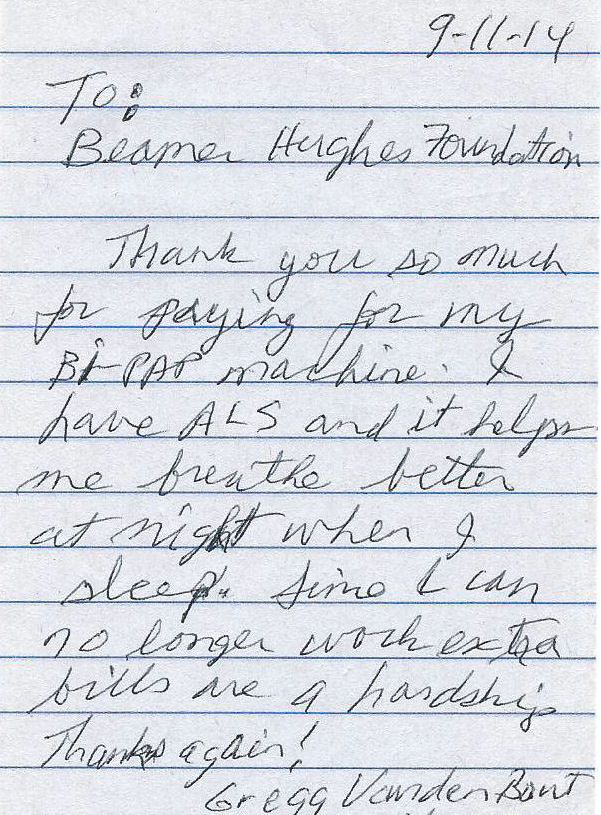 9-11-14
To:
Beamer Hughes Foundation
Thank you so much
for paying for my
Bi-PAP machine. I
have ALS and it helps
me breathe better
at night when I
sleep. Since I can
no longer work extra
bills are a hardship
Thanks again!
Gregg VandenBout